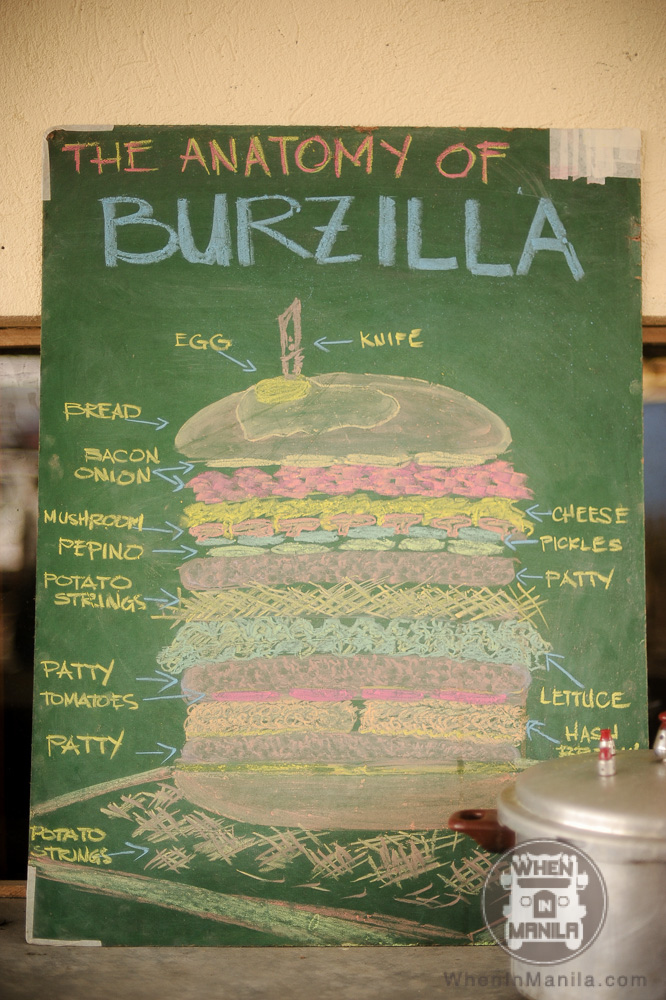 THE ANATOMY OF
BURZILLA
EGG
KNIFE
BREAD
BACON
ONION
MUSHROOM
CHEESE
PEPINO
PICKLES
POTATO
STRINGS
PATTY
PATTY
TOMATOES
LETTUCE
PATTY
HASH
POTATO
STRINGS
WHEN
IN
MANILA
WhenInManila.com